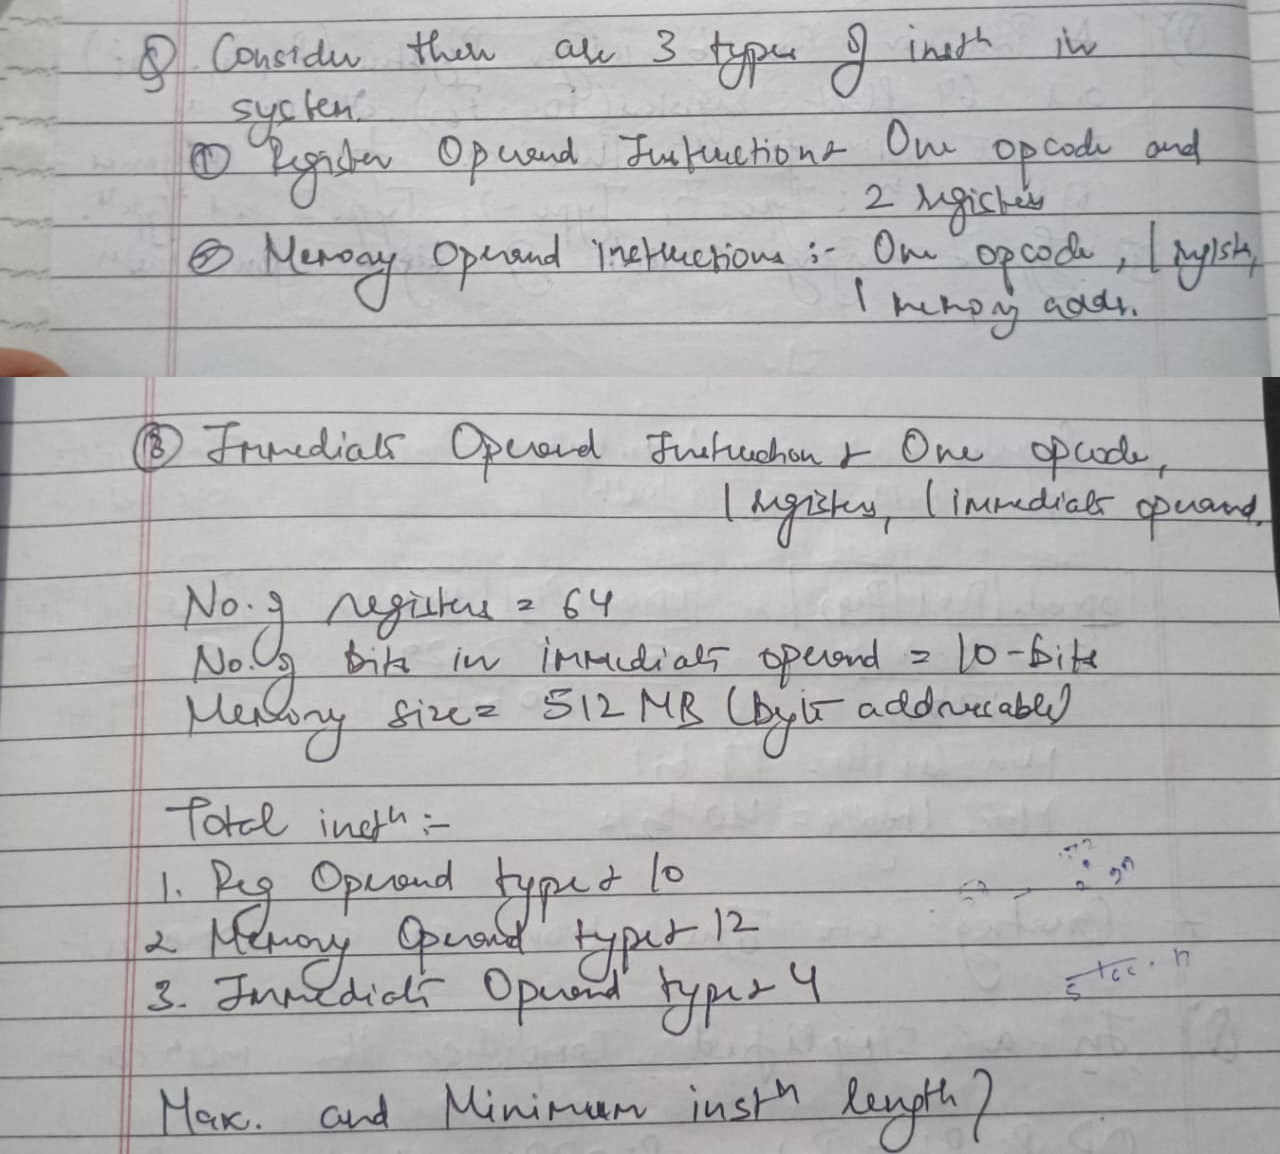 Q) Consider there are 3 types of instn in
system.
① Register Operand Instructions One opcode and
2 registers
② Memory Operand instructions :- One opcode, 1 register,
1 memory addr.
③ Immediate Operand Instruction : One opcode,
1 register, 1 immediate operand.
No. of registers = 64
No. of bits in immediate operand = 10-bits
Memory size = 512 MB (byte addressable)
Total instn :-
1. Reg Operand type : 10
2 Memory Operand type : 12
3. Immediate Operand type : 4
Max. and Minimum instn length ?